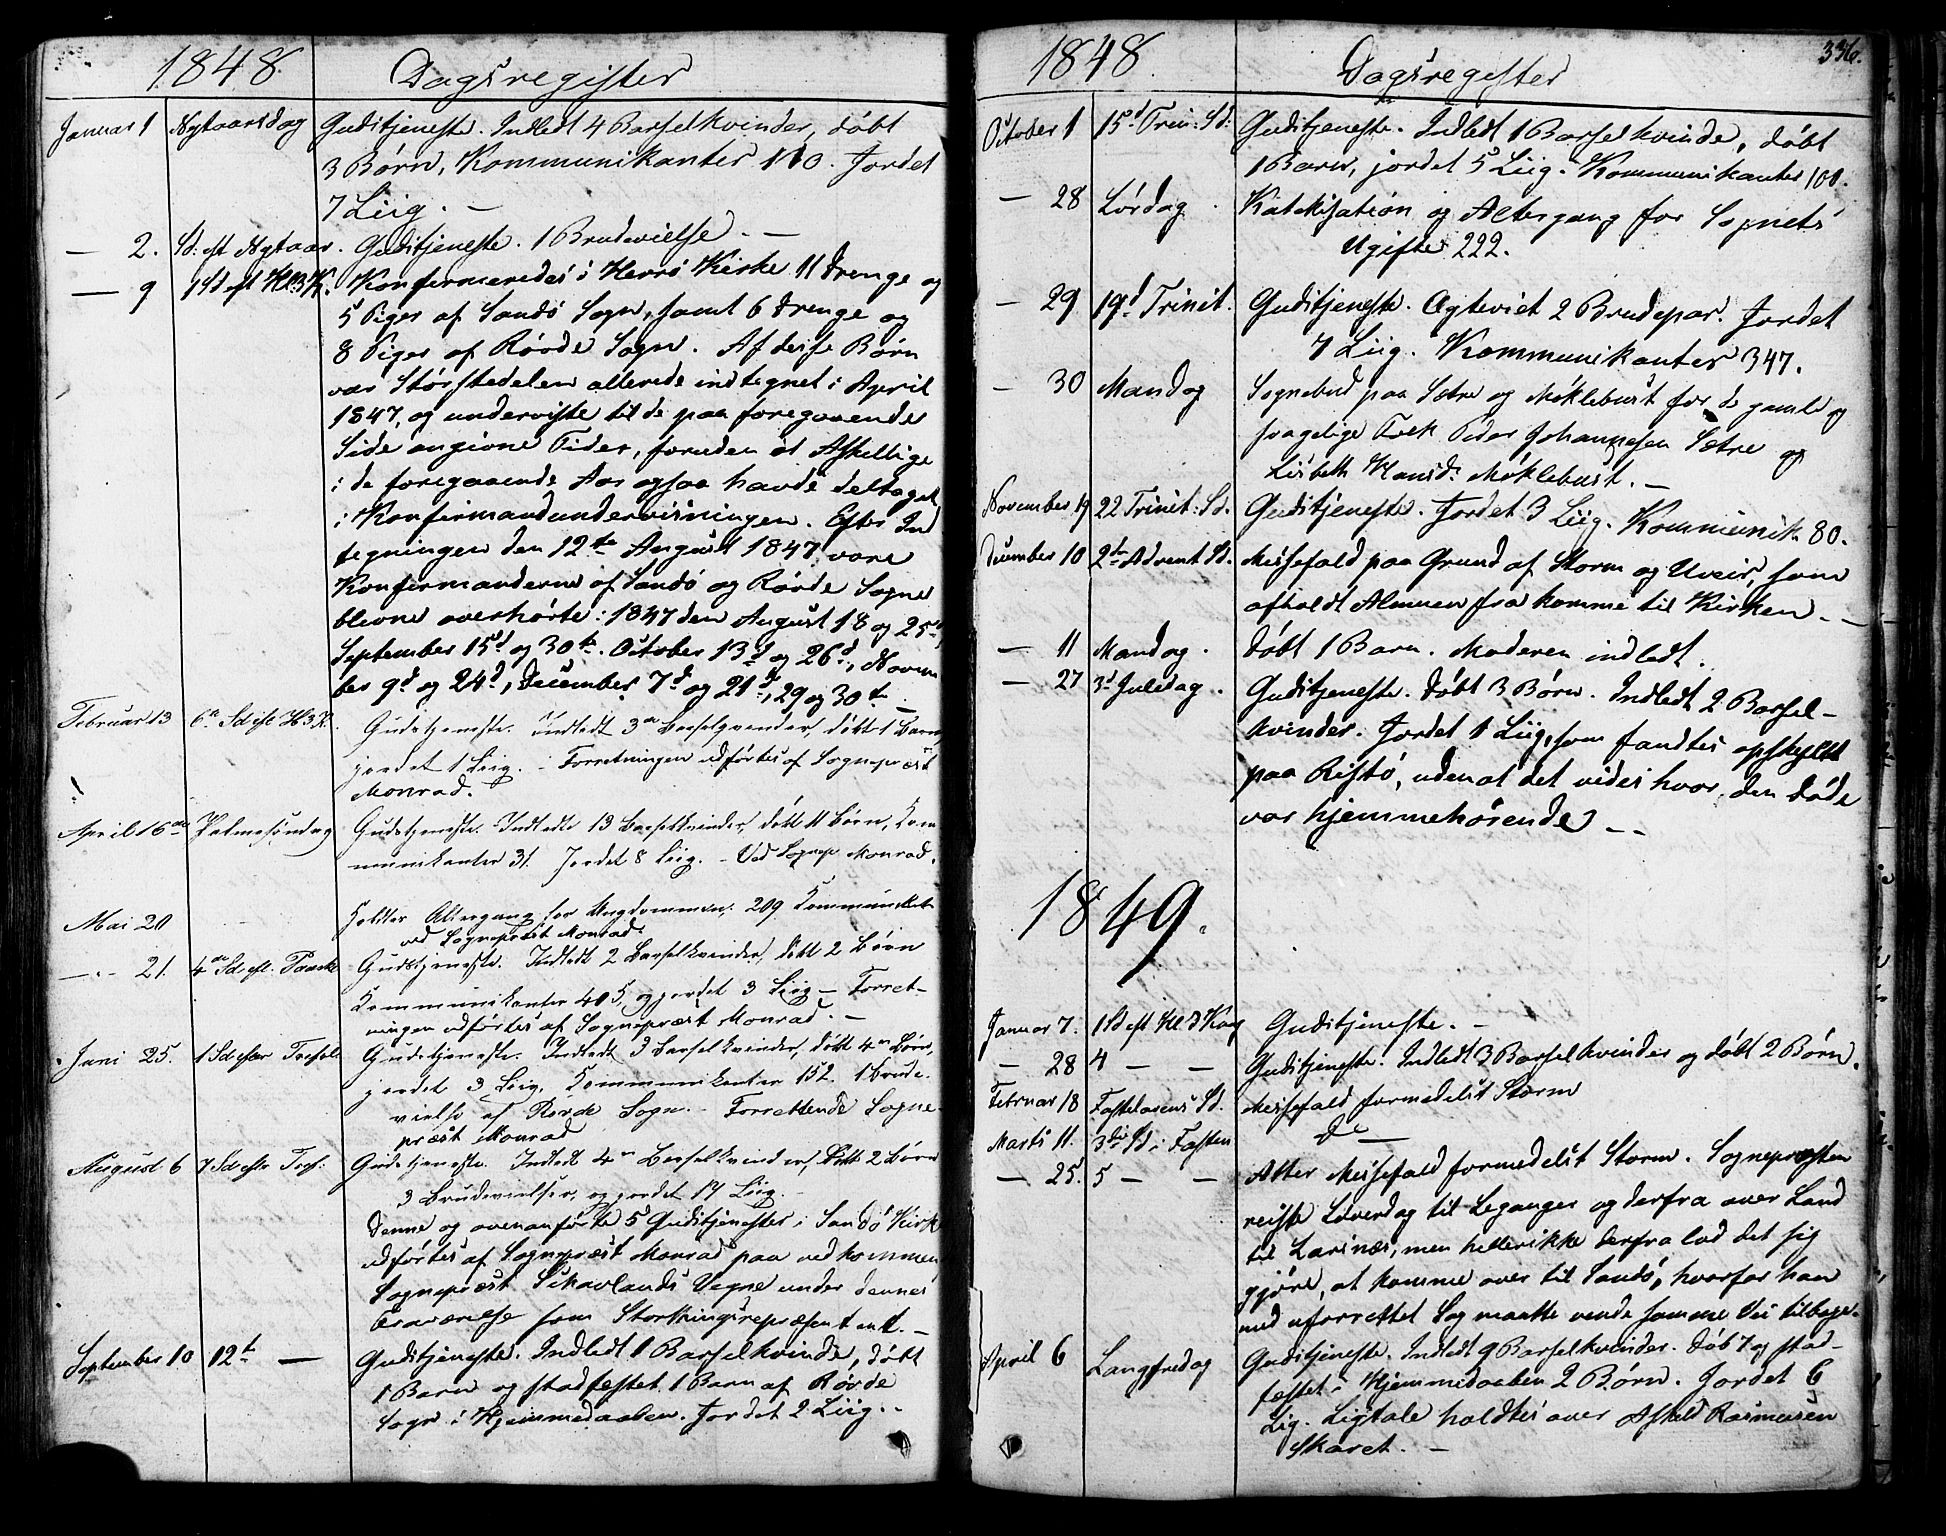 1848. Dagsregister
Januar 1 Nytaarsdag Gudstjeneste. Indledt 4 Barselkvinder, døbt
3 Børn, Kommunikanter 110. Jordet
7 Liig. —
— 2. Sd. eft Nytaar. Gudstjeneste. 1 Brudevielse. —
— 9 1 Sd eft Hl. 3 K. Konfirmeredes i Herrø Kirke 11 Drenge og
5 Piger af Sandø Sogn, samt 6 Drenge og
8 Piger af Røvde Sogn. Af disse Børn
var Størstedelen allerede indtegnet i April
1847, og underviste til de paa foregaaende
Side angivne Tider, foruden at Adskillige
i de foregaaende Aar ogsaa havde deltaget
i Konfirmandundervisningen. Efter Ind
tegningen den 12te August 1847 vare
Konfirmanderne af Sandø og Røvde Sogne
blevne overhørte: 1847 den August 18 og 25de,
September 15d og 30te. October 13d og 26d, Novem
ber 9d og 24d, December 7d og 21d, 29 og 30te —
Februar 13 6te Sd eft H. 3 K. Gudstjeneste. Indledt 3de Barselqvinder, døbt 1 Barn,
jordet 1 Liig. — Forretningen udførtes af Sognepræst
Monrad.
April 16de Palmesøndag Gudstjeneste. Indledte 13 Barselkvinder, døbt 11 Børn, Kom
munikanter 31. Jordet 8 Liig. — Ved Sognepr Monrad.
Mai 20 Holdtes Altergang for Ungdommen; 209 Kommunikt
ved Sognepræst Monrad.
— 21. 4de Sd eft. Paaske Gudstjeneste. Indledt 2 Barselkvinder, døbt 2 Børn
Kommunikanter 405, og jordet 3 Liig — Forret-
ningen udførtes af Sognepræst Monrad. —
Juni 25. 1 Sd efter Trefold. Gudstjeneste. Indledt 3 Barselkvinder, døbt 4re Børn,
jordet 3 Liig, Kommunikanter 152. 1 Brude-
vielse af Røvde Sogn. — Forrettende Sogne-
præst Monrad
August 6 7 Sd eftr Tref: Gudstjeneste. Indledt 4re Barselkvinder, døbt 2 Børn
3 Brudevielser, og jordet 17 Liig. —
Denne og ovenanførte 5 Gudstjenester i Sandø Kirk
udførtes af Sognepræst Monrad paa vedkommen
Sognepræst Skavlands Vegne under dennes
Fraværelse som Storthingsrepræsentant. —
September 10 12te — Gudstjeneste. Indledt 1 Barselkvinde, døbt
1 Barn og stadfæstet 1 Barn af Røvde
Sogn i Hjemmedaaben. Jordet 2 Liig. —
1848. Dagsregister 336.
October 1 15d Trin: Sd: Gudstjeneste. Indledt 1 Barselkvinde, døbt
1 Barn, jordet 5 Liig. Kommunikanter 101.
— 28 Lørdag. Katekisation og Altergang for Sognets
Ugifte 222.
— 29 19d Trinit. Gudstjeneste. Ægteviet 2 Brudepar. Jordet
7 Liig. Kommunikanter 347.
— 30 Mandag Sognebud paa Sætre og Møklebust for de gamle og
svagelige Folk Peder Johannesen Sætre og
Lisbeth Hansd: Møklebust. —
November 19 22 Trinit: Sd. Gudstjeneste. Jordet 3 Liig. Kommunik. 80.
December 10 2den Advent Sd. Messefald paa Grund af Storm og Uveir, som
afholdt Almuen fra komme til Kirken. —
— 11 Mandag. Døbt 1 Barn. Moderen indledt.
— 27 3d Juledag. Gudstjeneste. Døbt 3 Børn. Indledt 2 Barsel-
kvinder. Jordet 1 Liig, som fandtes opskyllt
paa Ristø, uden at det vides hvor den Døde
var hjemmehørende. —
1849.
Januar 7. 1 Sd eft Hl 3 Kong Gudstjeneste. —
— 28 4 — — Gudstjeneste. Indledt 3 Barselkvinder og døbt 2 Børn.
Februar 18 Fastelavens Sd. Messefald formedelst Storm
Marts 11. 3die Sd i Fasten Do —
— 25. 5 — — Atter Messefald formedelst Storm. Sognepræsten
reiste Løverdag til Leganger og derfra over Land
til Larsnæs, men hellerikke derfra lod det sig
gjøre, at komme over til Sandø, hvorfor han
med uforrettet Sag maatte vende samme Vei tilbage.
April 6 Langfredag Gudstjeneste. Indledt 9 Barselkvinder. Døb 7 og stad-
fæstet i Hjemmedaaben 2 Børn. Jordet 6
Lig. Ligtale holdtes over Askild Rasmusen
Skaret. —